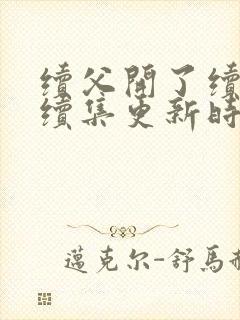 續父開了續
續集更新時
邁克尔-舒馬赫